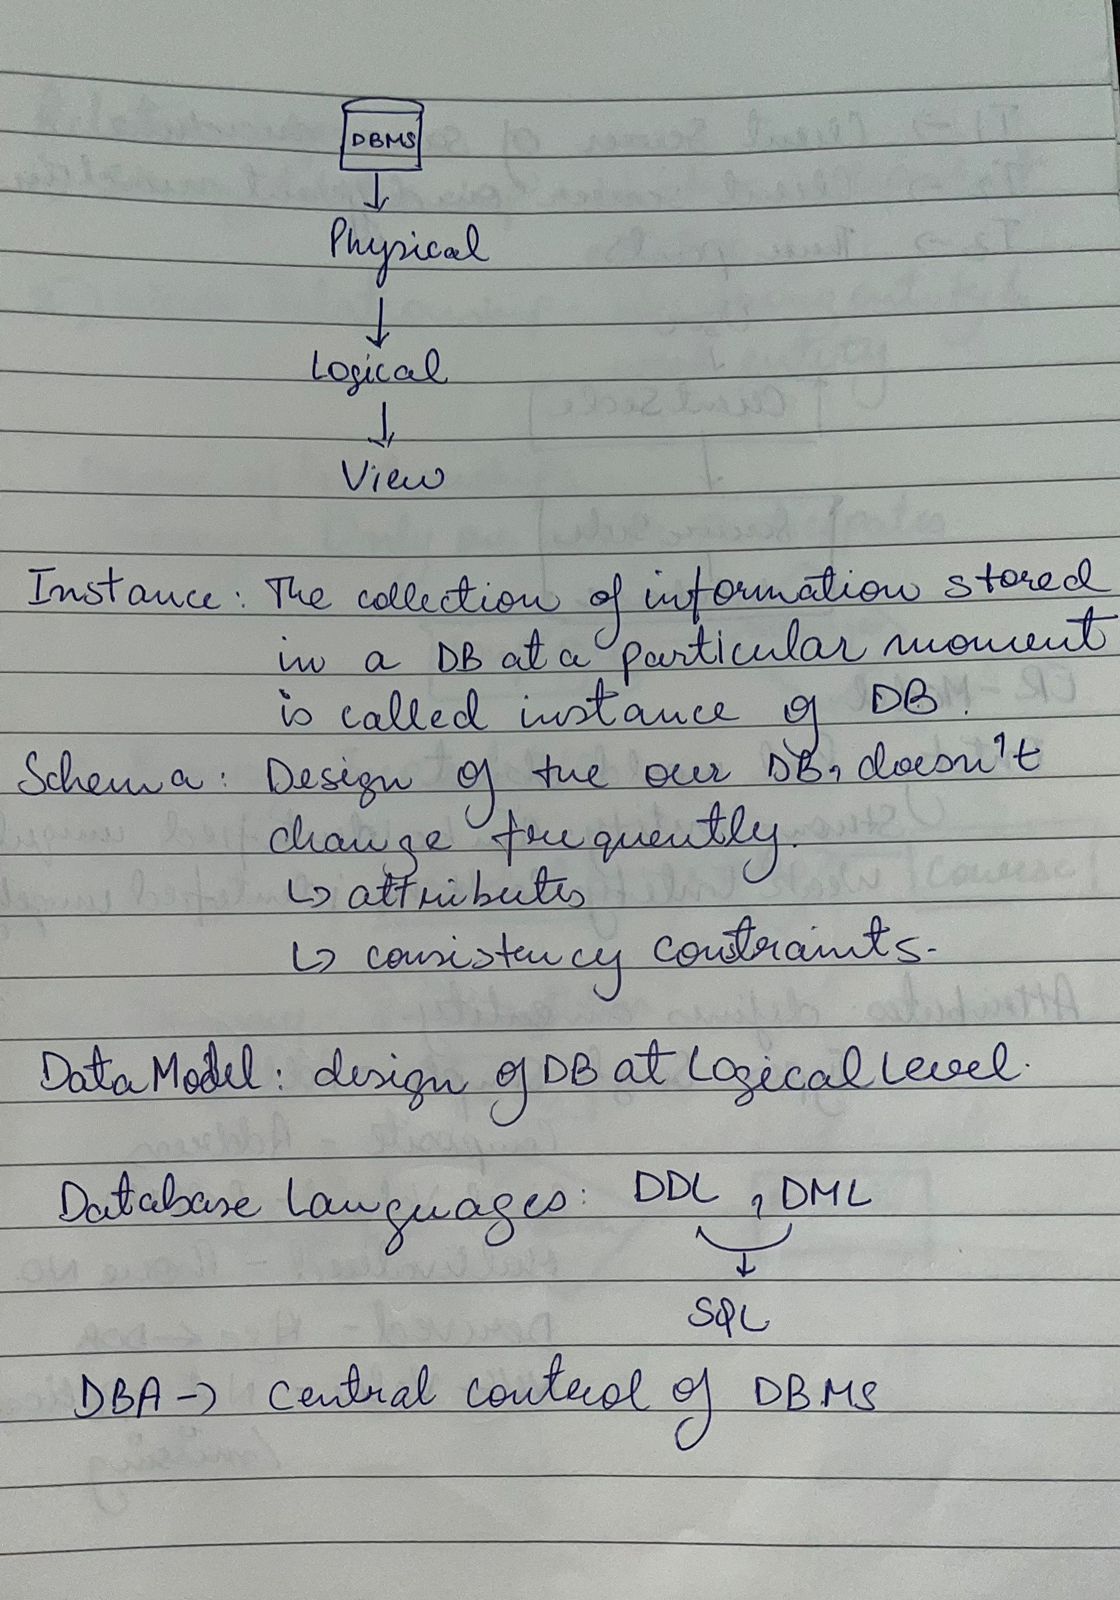 DBMS
Physical
Logical
View
Instance: The collection of information stored
in a DB at a particular moment
is called instance of DB.
Schema: Design of the our DB, doesn't
change frequently.
↳ attributes
↳ consistency contraints.
Data Model: design of DB at Logical Level.
Database Languages: DDL, DML
SQL
DBA → Central control of DBMS